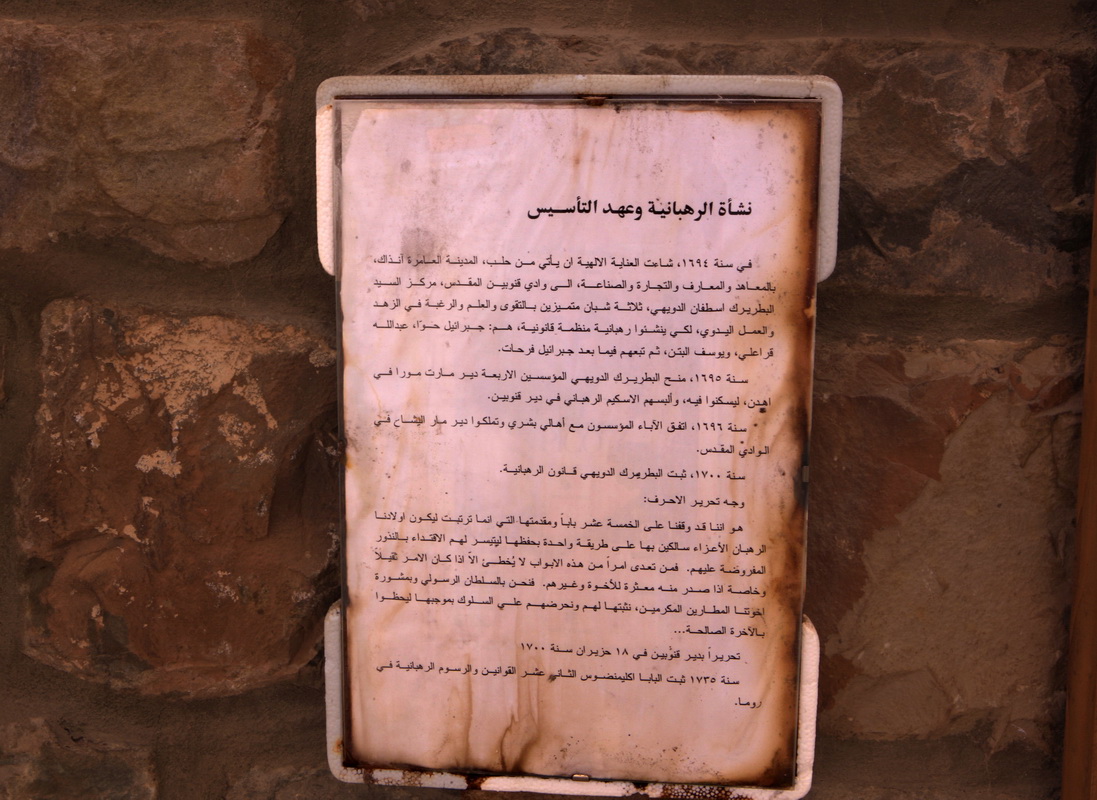 نشأة الرهبانية وعهد التأسيس
في سنة ١٦٩٤، شاءت العناية الالهية ان يأتي من حلب، المدينة العامرة آنذاك،
بالمعاهد والمعارف والتجارة والصناعة، الى وادي قنوبين المقدس، مركز السيد
البطريرك اسطفان الدويهي، ثلاثة شبان متميزين بالتقوى والعلم والرغبة في الزهد
والعمل اليدوي، لكي ينشئوا رهبانية منظمة قانونية، هم: جبرائيل حوّا، عبدالله
قراعلي، ويوسف البتن، ثم تبعهم فيما بعد جبرائيل فرحات.
سنة ١٦٩٥، منح البطريرك الدويهي المؤسسين الاربعة دير مارت مورا في
اهدن، ليسكنوا فيه، وألبسهم الاسكيم الرهباني في دير قنوبين.
سنة ١٦٩٦، اتفق الآباء المؤسسون مع أهالي بشري وتملكوا دير مار اليشاع في
الوادي المقدس.
سنة ١٧٠٠، ثبت البطريرك الدويهي قانون الرهبانية.
وجه تحرير الاحرف:
هو اننا قد وقفنا على الخمسة عشر باباً ومقدمتها التي انما ترتبت ليكون اولادنا
الرهبان الأعزاء سالكين بها على طريقة واحدة بحفظها ليتيسر لهم الاقتداء بالنذور
المفروضة عليهم. فمن تعدى امراً من هذه الابواب لا يُخطئ الاّ اذا كان الامر ثقيلاً
وخاصة اذا صدر منه معثرة للأخوة وغيرهم. فنحن بالسلطان الرسولي وبمشورة
اخوتنا المطارين المكرمين، نثبتها لهم ونحرضهم علي السلوك بموجبها ليحظوا
بالآخرة الصالحة...
تحريراً بدير قنوبين في ١٨ حزيران سنة ١٧٠٠
سنة ١٧٣٥ ثبت البابا اكليمنضوس الثاني عشر القوانين والرسوم الرهبانية في
روما.